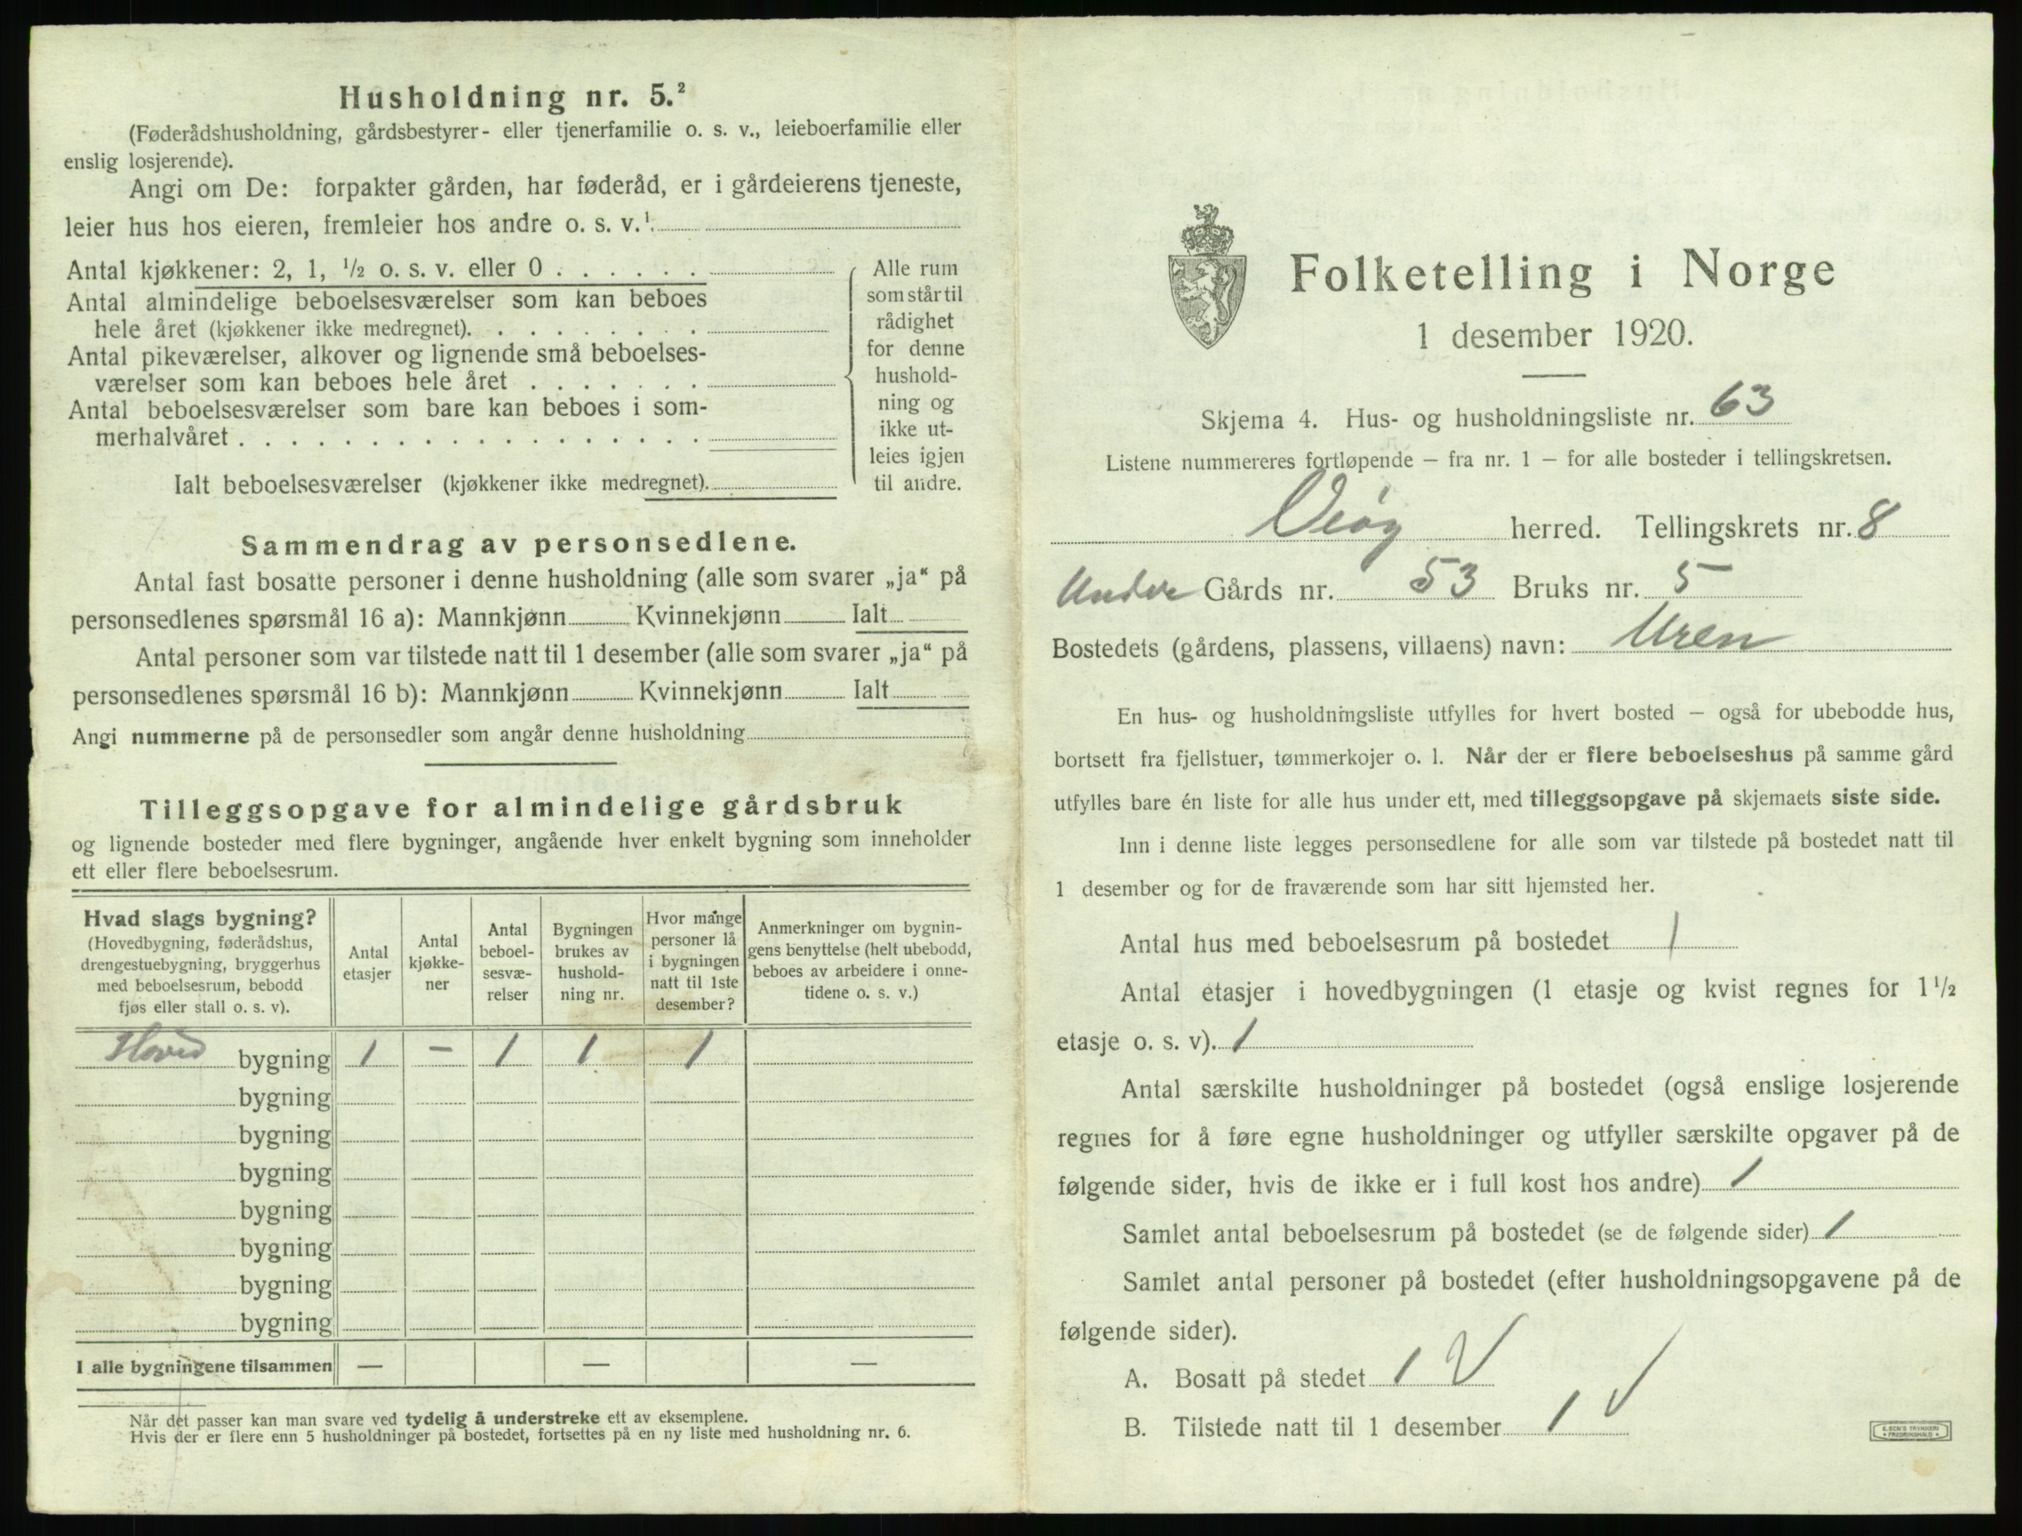 Husholdning nr. 5.²
(Føderådshusholdning, gårdsbestyrer- eller tjenerfamilie o. s. v., leieboerfamilie eller
enslig losjerende).
Angi om De: forpakter gården, har føderåd, er i gårdeierens tjeneste,
leier hus hos eieren, fremleier hos andre o. s. v.¹
Antal kjøkkener: 2, 1, ½ o. s. v. eller 0 . . . . . .
Antal almindelige beboelsesværelser som kan beboes
hele året (kjøkkener ikke medregnet). . . . . . . . .
Antal pikeværelser, alkover og lignende små beboelses-
værelser som kan beboes hele året . . . . . . .
Antal beboelsesværelser som bare kan beboes i som-
merhalvåret . . . . . . . . . . . . . . . . . .
Ialt beboelsesværelser (kjøkkener ikke medregnet).
Alle rum
som står til
rådighet
for denne
hushold-
ning og
ikke ut-
leies igjen
til andre.
Sammendrag av personsedlene.
Antal fast bosatte personer i denne husholdning (alle som svarer „ja“ på
personsedlenes spørsmål 16 a): Mannkjønn Kvinnekjønn Ialt
Antal personer som var tilstede natt til 1 desember (alle som svarer „ja“ på
personsedlenes spørsmål 16 b): Mannkjønn Kvinnekjønn Ialt
Angi nummerne på de personsedler som angår denne husholdning
Tilleggsopgave for almindelige gårdsbruk
og lignende bosteder med flere bygninger, angående hver enkelt bygning som inneholder
ett eller flere beboelsesrum.
Hvad slags bygning?
(Hovedbygning, føderådshus,
drengestuebygning, bryggerhus
med beboelsesrum, bebodd
fjøs eller stall o. s. v).
Antal
etasjer
Antal
kjøkke-
ner
Antal
beboel-
sesvæ-
relser
Bygningen
brukes av
hushold-
ning nr.
Hvor mange
personer lå
i bygningen
natt til 1ste
desember?
Anmerkninger om bygnin-
gens benyttelse (helt ubebodd,
beboes av arbeidere i onne-
tidene o. s. v.)
Hoved bygning 1 – 1 1 1
bygning
bygning
bygning
bygning
bygning
bygning
bygning
I alle bygningene tilsammen — — —
Når det passer kan man svare ved tydelig å understreke ett av eksemplene.
Hvis der er flere enn 5 husholdninger på bostedet, fortsettes på en ny liste med husholdning nr. 6.
Folketelling i Norge
1 desember 1920.
Skjema 4. Hus- og husholdningsliste nr. 63
Listene nummereres fortløpende – fra nr. 1 – for alle bosteder i tellingskretsen.
Veøy herred. Tellingskrets nr. 8
Under Gårds nr. 53 Bruks nr. 5
Bostedets (gårdens, plassens, villaens) navn: Uren
En hus- og husholdningsliste utfylles for hvert bosted – også for ubebodde hus,
bortsett fra fjellstuer, tømmerkojer o. l. Når der er flere beboelseshus på samme gård
utfylles bare én liste for alle hus under ett, med tilleggsopgave på skjemaets siste side.
Inn i denne liste legges personsedlene for alle som var tilstede på bostedet natt til
1 desember og for de fraværende som har sitt hjemsted her.
Antal hus med beboelsesrum på bostedet 1
Antal etasjer i hovedbygningen (1 etasje og kvist regnes for 1½
etasje o. s. v). 1
Antal særskilte husholdninger på bostedet (også enslige losjerende
regnes for å føre egne husholdninger og utfyller særskilte opgaver på de
følgende sider, hvis de ikke er i full kost hos andre) 1
Samlet antal beboelsesrum på bostedet (se de følgende sider) 1
Samlet antal personer på bostedet (efter husholdningsopgavene på de
følgende sider).
A. Bosatt på stedet 1 V
B. Tilstede natt til 1 desember 1 √